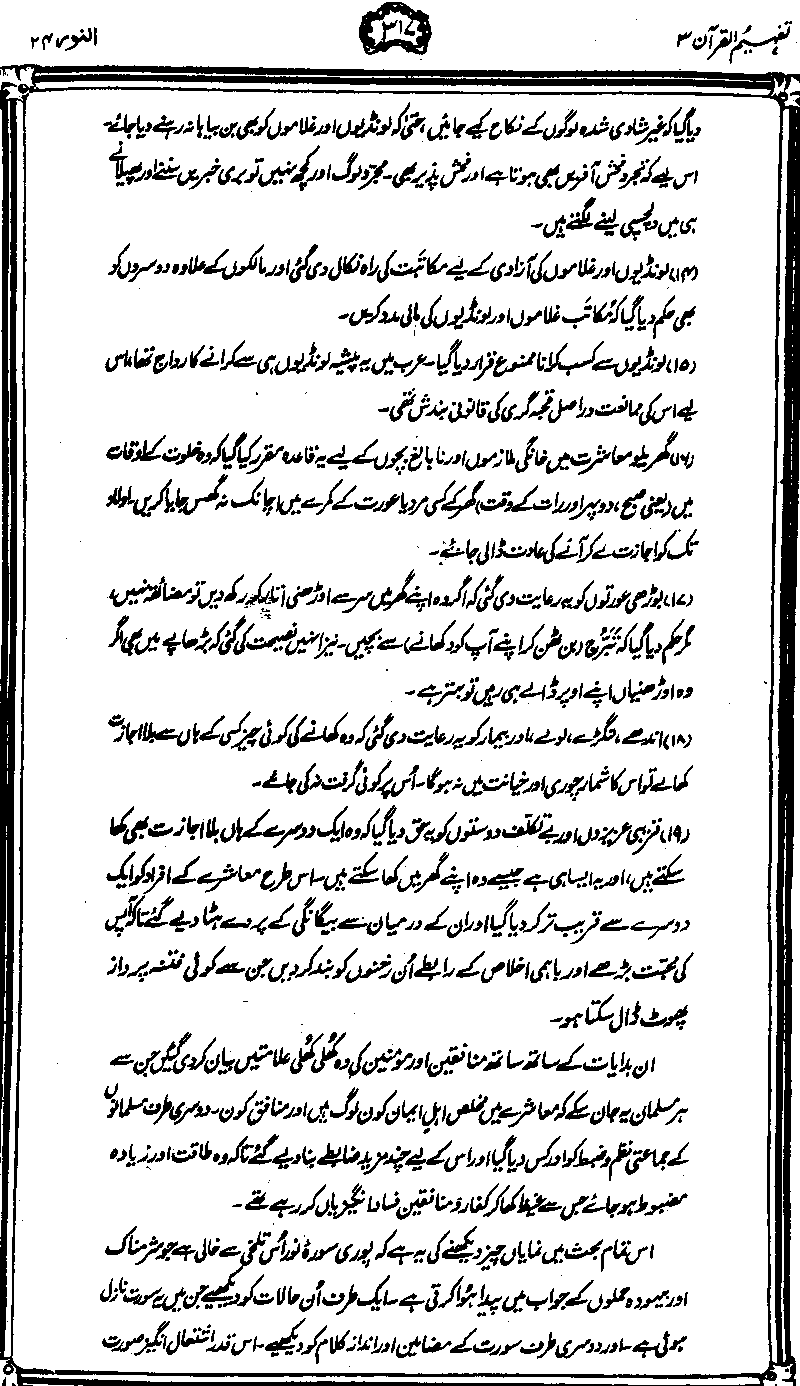 تفہیم القرآن ۳
۳۱۷
النور ۲۴
دیا گیا کہ غیر شادی شدہ لوگوں کے نکاح کیے جائیں، حتیٰ کہ لونڈیوں اور غلاموں کو بھی بن بیاہا نہ رہنے دیا جائے۔
اس لیے کہ تجرد فحش آفریں بھی ہوتا ہے اور فحش پذیر بھی۔ مجرد لوگ اور کچھ نہیں تو بری خبریں سننے اور پھیلانے
ہی میں دلچسپی لینے لگتے ہیں۔
(۱۴) لونڈیوں اور غلاموں کی آزادی کے لیے مکاتَبت کی راہ نکال دی گئی اور مالکوں کے علاوہ دوسروں کو
بھی حکم دیا گیا کہ مُکاتَب غلاموں اور لونڈیوں کی مالی مدد کریں۔
(۱۵) لونڈیوں سے کسب کرانا ممنوع قرار دیا گیا۔ عرب میں یہ پیشہ لونڈیوں ہی سے کرانے کا رواج تھا، اس
لیے اس کی ممانعت دراصل قحبہ گری کی قانونی بندش تھی۔
(۱۶) گھریلو معاشرت میں خانگی ملازموں اور نابالغ بچوں کے لیے یہ قاعدہ مقرر کیا گیا کہ وہ خلوت کے اوقات
میں (یعنی صبح، دوپہر اور رات کے وقت) گھر کے کسی مرد یا عورت کے کمرے میں اچانک نہ گھس جایا کریں۔ اولاد
تک کو اجازت لے کر آنے کی عادت ڈالی جائے۔
(۱۷) بوڑھی عورتوں کو یہ رعایت دی گئی کہ اگر وہ اپنے گھر میں سر سے اوڑھنی اتار کر رکھ دیں تو مضائقہ نہیں،
مگر حکم دیا گیا کہ تَبَرُّج (بن ٹھن کر اپنے آپ کو دکھانے) سے بچیں۔ نیز انہیں نصیحت کی گئی کہ بڑھاپے میں بھی اگر
وہ اوڑھنیاں اپنے اوپر ڈالے ہی رہیں تو بہتر ہے۔
(۱۸) اندھے، لنگڑے، لولے، اور بیمار کو یہ رعایت دی گئی کہ وہ کھانے کی کوئی چیز کسی کے ہاں سے بلا اجازت
کھالے تو اس کا شمار چوری اور خیانت میں نہ ہوگا۔ اُس پر کوئی گرفت نہ کی جائے۔
(۱۹) قریبی عزیزوں اور بے تکلف دوستوں کو یہ حق دیا گیا کہ وہ ایک دوسرے کے ہاں بلا اجازت بھی کھا
سکتے ہیں، اور یہ ایسا ہی ہے جیسے وہ اپنے گھر میں کھا سکتے ہیں۔ اس طرح معاشرے کے افراد کو ایک
دوسرے سے قریب تر کر دیا گیا اور ان کے درمیان سے بیگانگی کے پردے ہٹا دیے گئے تاکہ آپس
کی محبت بڑھے اور باہمی اخلاص کے رابطے اُن رخنوں کو بند کر دیں جن سے کوئی فتنہ پرداز
پھوٹ ڈال سکتا ہو۔
ان ہدایات کے ساتھ ساتھ منافقین اور مومنین کی وہ کھُلی کھُلی علامتیں بیان کر دی گئیں جن سے
ہر مسلمان یہ جان سکے کہ معاشرے میں مخلص اہلِ ایمان کون لوگ ہیں اور منافق کون۔ دوسری طرف مسلمانوں
کے جماعتی نظم و ضبط کو اور کس دیا گیا اور اس کے لیے چند مزید ضابطے بنا دیے گئے تاکہ وہ طاقت اور زیادہ
مضبوط ہو جائے جس سے غیظ کھا کر کفار و منافقین فساد انگیزیاں کر رہے تھے۔
اس تمام بحث میں نمایاں چیز دیکھنے کی یہ ہے کہ پوری سورۂ نور اُس تلخی سے خالی ہے جو شرمناک
اور بیہودہ حملوں کے جواب میں پیدا ہُوا کرتی ہے۔ ایک طرف اُن حالات کو دیکھیے جن میں یہ سورت نازل
ہوئی ہے۔ اور دوسری طرف سورت کے مضامین اور اندازِ کلام کو دیکھیے۔ اس قدر اشتعال انگیز صورت